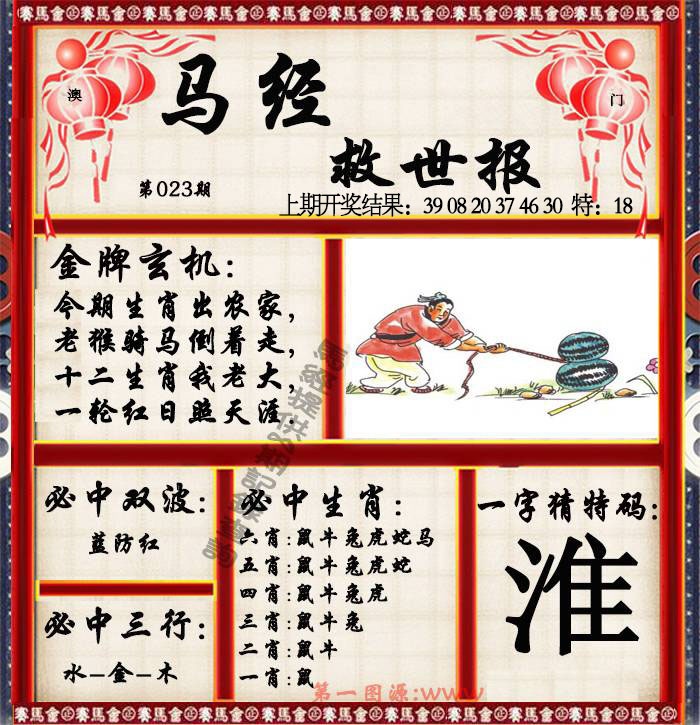 賽馬會金正賽馬會金正賽馬會金正賽馬會金正賽馬會金正賽馬會
澳
门
马经
救世报
第023期
上期开奖结果：39 08 20 37 46 30 特：18
金牌玄机：
今期生肖出农家，
老猴骑马倒着走，
十二生肖我老大，
一轮红日照天涯．
必中双波：
蓝防红
必中三行：
水-金-木
必中生肖：
六肖:鼠牛兔虎蛇马
五肖:鼠牛兔虎蛇
四肖:鼠牛兔虎
三肖:鼠牛兔
二肖:鼠牛
一肖:鼠
一字猜特码：
淮
第一图源:www